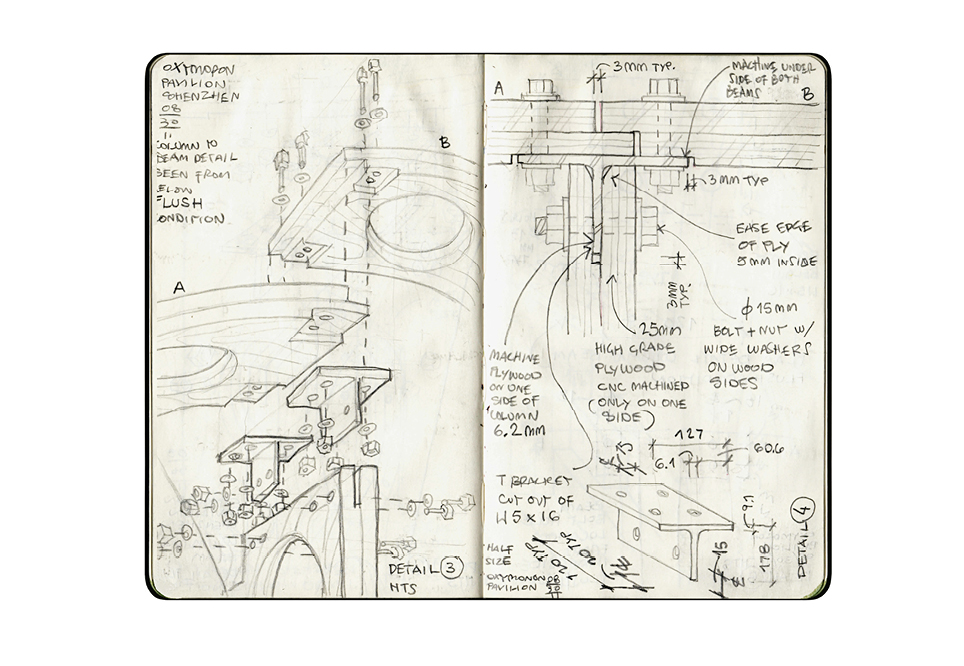 OXYMORON
PAVILION
SHENZHEN
08
30
11
COLUMN TO
BEAM DETAIL
SEEN FROM
BELOW
FLUSH
CONDITION
B
A
DETAIL 3
NTS
A
3MM TYP.
MACHINE UNDER
SIDE OF BOTH
BEAMS
B
3MM TYP
EASE EDGE
OF PLY
5MM INSIDE
3MM
TYP.
φ15MM
BOLT + NUT W/
WIDE WASHERS
ON WOOD
SIDES
25MM
HIGH GRADE
PLYWOOD
CNC MACHINED
(ONLY ON ONE
SIDE)
MACHINE
PLYWOOD
ON ONE
SIDE OF
COLUMN
6.2MM
127
60.6
6.1
T BRACKET
CUT OUT OF
W5 x 16
HALF
SIZE
OXYMORON
PAVILION
08
30
11
120 TYP
20 TYP
15
178
DETAIL 4